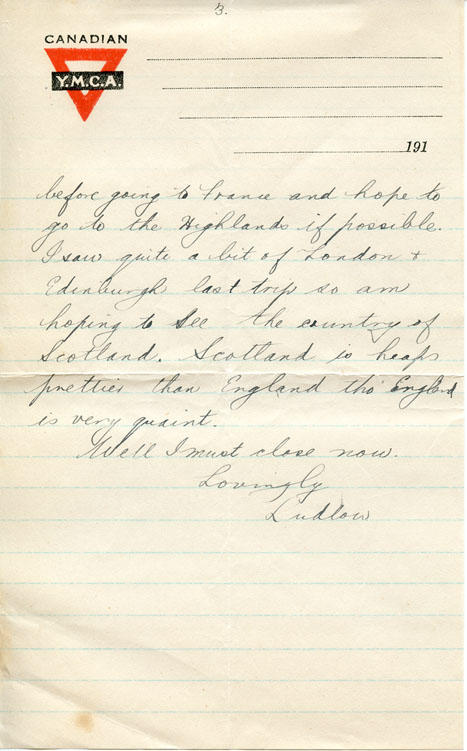 3.
CANADIAN
Y.M.C.A.
191
before going to France and hope to
go to the Highlands if possible.
I saw quite a bit of London +
Edinburgh last trip so am
hoping to see the country of
Scotland. Scotland is heaps
prettier than England tho' England
is very quaint.
Well I must close now.
Lovingly
Ludlow